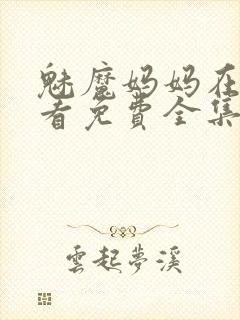 魅魔妈妈在
看免費全集
雲起夢溪